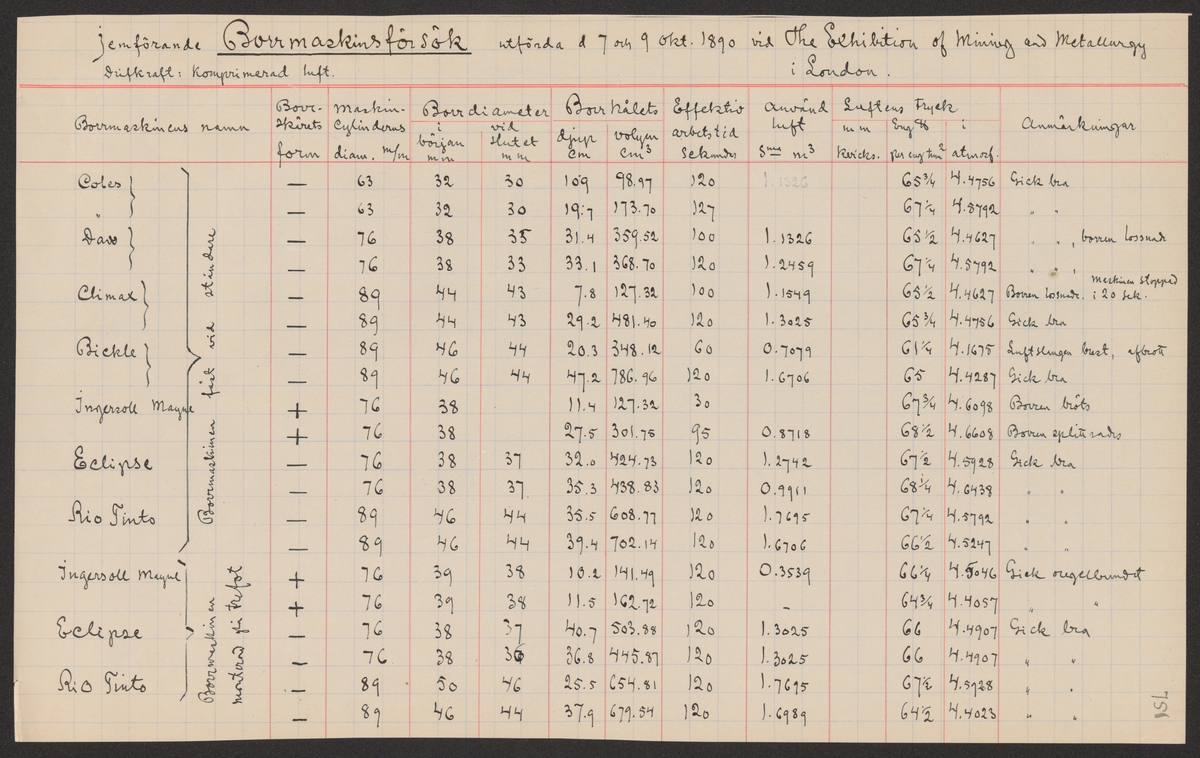 Jemförande Borrmaskinsförsök utförda d 7 och 9 Okt. 1890 vid The Exhibition of Mining and Metallurgy
Drifkraft: Komprimerad luft. i London.
Borrmaskinens namn | Borr-skärets form | Maskin-Cylinderns diam. m/m | Borrdiameter i början m m | vid slutet m m | Borrhålets djup cm | volym cm³ | Effektiv arbetstid sekunder | Använd luft m³ | Luftens Tryck m m kvicks. | Eng ℔ per eng tum² | i atmosf. | Anmärkningar
Coles — 63 32 30 10.9 98.97 120 1.1326 65 3/4 4.4756 Gick bra
" — 63 32 30 19.7 173.70 127 67 1/4 4.8792 " "
Daw — 76 38 35 31.4 359.52 100 1.1326 65 1/2 4.4627 " " , borren lossnade
— 76 38 33 33.1 368.70 120 1.2459 67 1/4 4.5792 " " ,
Climax — 89 44 43 7.8 127.32 100 1.1549 65 1/2 4.4627 Borren lossnade. maskinen stopped i 20 sek.
— 89 44 43 29.2 481.40 120 1.3025 65 3/4 4.4756 Gick bra
Bickle — 89 46 44 20.3 348.12 60 0.7079 61 1/4 4.1675 Luftslangen brast, afbrott
— 89 46 44 47.2 786.96 120 1.6706 65 4.4287 Gick bra
Ingersoll Mayne + 76 38 11.4 127.32 30 67 3/4 4.6098 Borren bröts
+ 76 38 27.5 301.75 95 0.8718 68 1/2 4.6608 Borren splittrades
Eclipse — 76 38 37 32.0 424.73 120 1.2742 67 1/2 4.5928 Gick bra
— 76 38 37 35.3 438.83 120 0.9911 68 1/4 4.6438 " "
Rio Tinto — 89 46 44 35.5 608.77 120 1.7695 67 1/4 4.5792 " "
— 89 46 44 39.4 702.14 120 1.6706 66 1/2 4.5247 " "
Borrmaskinen fäst vid ständare
Ingersoll Mayne + 76 39 38 10.2 141.49 120 0.3539 66 1/4 4.5046 Gick oregelbundet
+ 76 39 38 11.5 162.72 120 – 64 3/4 4.4057 " "
Eclipse — 76 38 37 40.7 503.88 120 1.3025 66 4.4907 Gick bra
— 76 38 36 36.8 445.87 120 1.3025 66 4.4907 " "
Rio Tinto — 89 50 46 25.5 654.81 120 1.7695 67 1/2 4.5928 " "
— 89 46 44 37.9 679.54 120 1.6989 64 1/2 4.4023 " "
Borrmaskinen monterad på trefot